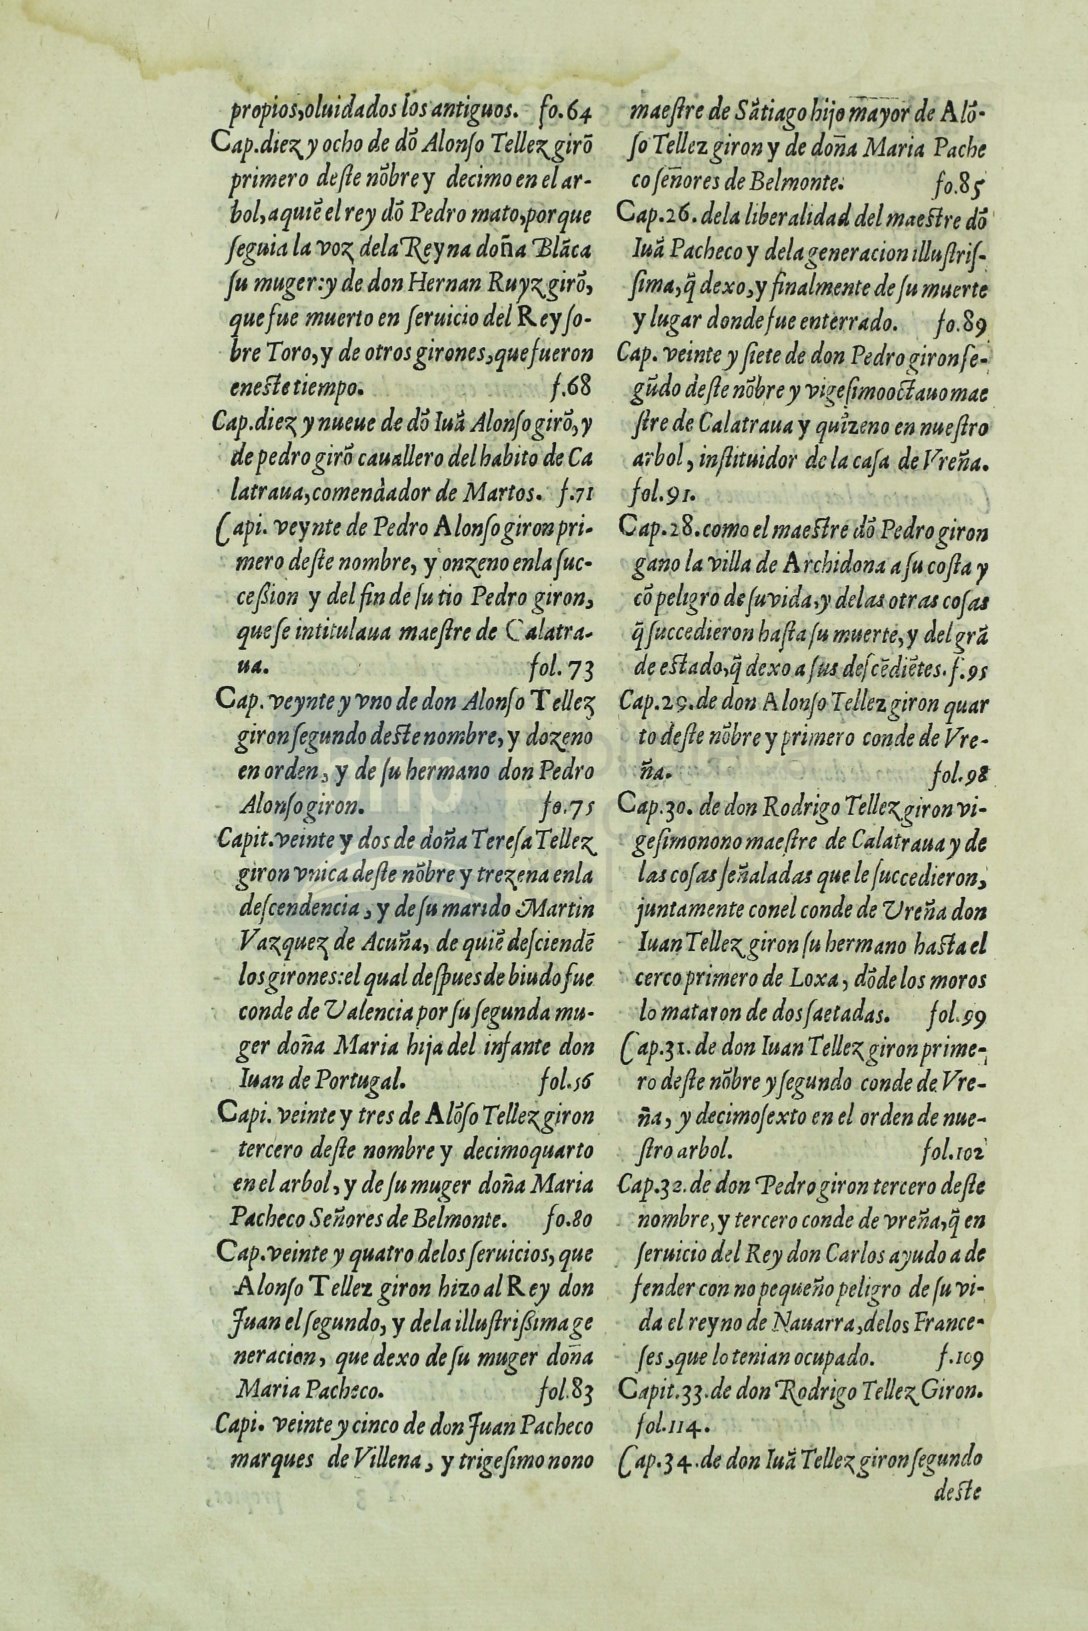 propios,oluidados los antiguos. fo.64
Cap.diez y ocho de dõ Alonſo Tellez girõ
primero deſte nõbre y decimo en el ar-
bol, a quiẽ el rey dõ Pedro mato, porque
ſeguia la voz dela Reyna doña Blãca
ſu muger: y de don Hernan Ruyz girõ,
que fue muerto en ſeruicio del Rey ſo-
bre Toro, y de otros girones, que fueron
eneſte tiempo. f.68
Cap.diez y nueue de dõ Iuã Alonſo girõ, y
de pedro girõ cauallero del habito de Ca
latraua, comendador de Martos. f.71
Capi. veynte de Pedro Alonſo giron pri-
mero deſte nombre, y onzeno enla ſuc-
ceßion y del fin de ſu tio Pedro giron,
que ſe intitulaua maeſtre de Calatra-
ua. fol. 73
Cap. veynte y vno de don Alonſo Tellez
giron ſegundo deſte nombre, y dozeno
en orden, y de ſu hermano don Pedro
Alonſo giron. fo.75
Capit.veinte y dos de doña Tereſa Tellez
giron vnica deſte nõbre y trezena enla
deſcendencia, y de ſu marido Martin
Vazquez de Acuña, de quiẽ deſciendẽ
los girones: el qual deſpues de biudo fue
conde de Valencia por ſu ſegunda mu-
ger doña Maria hija del infante don
Iuan de Portugal. fol.56
Capi. veinte y tres de Alõſo Tellez giron
tercero deſte nombre y decimoquarto
en el arbol, y de ſu muger doña Maria
Pacheco Señores de Belmonte. fo.80
Cap.veinte y quatro delos ſeruicios, que
Alonſo Tellez giron hizo al Rey don
Juan el ſegundo, y dela illuſtrißima ge
neracion, que dexo de ſu muger doña
Maria Pacheco. fol.83
Capi. veinte y cinco de don Juan Pacheco
marques de Villena, y trigeſimo nono
maeſtre de Sãtiago hijo mayor de Alõ-
ſo Tellez giron y de doña Maria Pache
co ſeñores de Belmonte. fo.85
Cap.26. dela liberalidad del maeſtre dõ
Iuã Pacheco y dela generacion illuſtriſ-
ſima, q̃ dexo, y finalmente de ſu muerte
y lugar donde fue enterrado. fo.89
Cap. veinte y ſiete de don Pedro giron ſe-
gũdo deſte nõbre y vigeſimooctauo mae
ſtre de Calatraua y quĩzeno en nueſtro
arbol, inſtituidor de la caſa de Vreña.
fol.91.
Cap.28.como el maeſtre dõ Pedro giron
gano la villa de Archidona a ſu coſta y
cõ peligro de ſu vida, y delas otras coſas
q̃ ſuccedieron haſta ſu muerte, y del grã
de eſtado, q̃ dexo a ſus deſcẽdiẽtes. f.95
Cap.29.de don Alonſo Tellez giron quar
to deſte nõbre y primero conde de Vre-
ña. fol.98
Cap.30. de don Rodrigo Tellez giron vi-
geſimonono maeſtre de Calatraua y de
las coſas ſeñaladas que le ſuccedieron,
juntamente conel conde de Vreña don
Iuan Tellez giron ſu hermano haſta el
cerco primero de Loxa, dõde los moros
lo mataron de dos ſaetadas. fol.99
Cap.31. de don Iuan Tellez giron prime-
ro deſte nõbre y ſegundo conde de Vre-
ña, y decimoſexto en el orden de nue-
ſtro arbol. fol.102
Cap.32.de don Pedro giron tercero deſte
nombre, y tercero conde de vreña, q̃ en
ſeruicio del Rey don Carlos ayudo a de
fender con no pequeño peligro de ſu vi-
da el reyno de Nauarra, delos France-
ſes, que lo tenian ocupado. f.109
Capit.33.de don Rodrigo Tellez Giron.
fol.114.
Cap.34.de don Iuã Tellez giron ſegundo
deſte